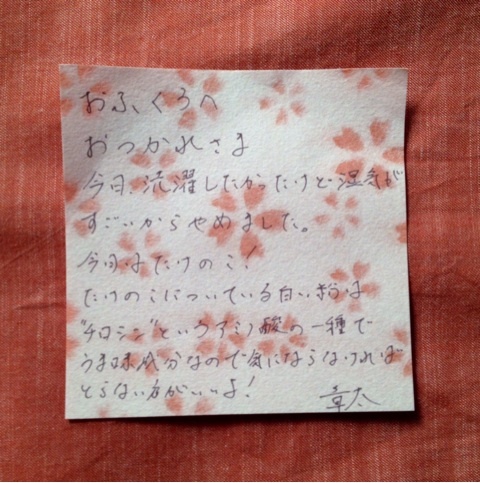 おふくろへ
おつかれさま
今日、洗濯したかったけど湿気が
すごいからやめました。
今日はたけのこ!
たけのこについている白い粉は
"チロシン"というアミノ酸の一種で
うま味成分なので気にならなければ
とらない方がいいよ!
章太